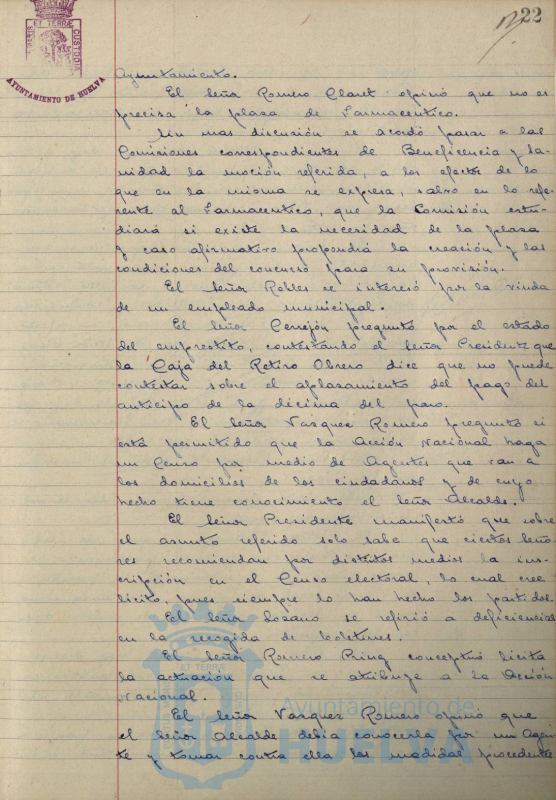 22
ET TERRÆ
CUSTODIA
AYUNTAMIENTO DE HUELVA
Ayuntamiento.
El Señor Romero Claret opinó que no es
precisa la plaza de Farmaceutico.
Sin mas discusión se acordó pasar a las
Comisiones correspondientes de Beneficencia y Sa-
nidad la moción referida, a los efectos de lo
que en la misma se expresa, salvo en lo refe-
rente al Farmaceutico, que la Comisión estu-
diará si existe la necesidad de la plaza
y caso afirmativo propondrá la creación y las
condiciones del concurso para su provisión.
El Señor Robles se interesó por la viuda
de un empleado municipal.
El Señor Cerrejón preguntó por el estado
del emprestito, contestando el Señor Presidente que
la Caja del Retiro Obrero dice que no puede
contestar sobre el aplazamiento del pago del
anticipo de la decima del paro.
El Señor Vazquez Romero preguntó si
está permitido que la Acción Nacional haga
un Censo por medio de Agentes que van a
los domicilios de los ciudadanos y de cuyo
hecho tiene conocimiento el Señor Alcalde.
El Señor Presidente manifestó que sobre
el asunto referido solo sabe que ciertos Seño-
res recomiendan por distintos medios la ins-
cripción en el Censo electoral, lo cual cree
licito, pues siempre lo han hecho los partidos.
El Señor Lozano se refirió a deficiencias
en la recogida de boletines.
El Señor Romero Pring conceptuó licita
la actuación que se atribuye a la Acción
Nacional.
El Señor Vazquez Romero opinó que
el Señor Alcalde debia conocerla por un Agen-
te y tomar contra ella las medidas procedente
Ayuntamiento de
HUELVA